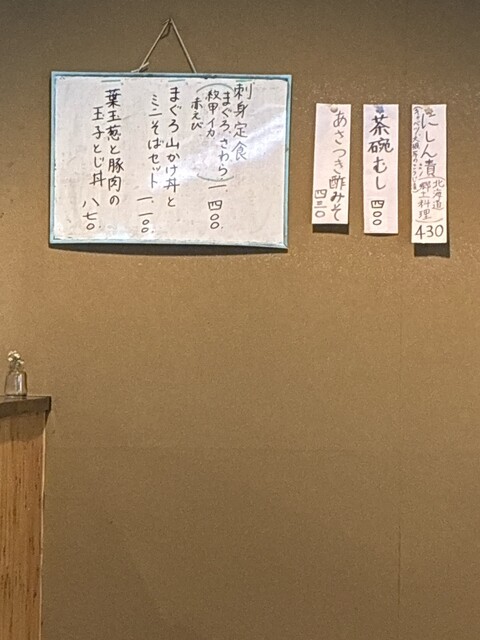 にしん漬
北海道
郷土料理
430
茶碗むし 四〇〇
あさつき酢みそ
四三〇
刺身定食
まぐろ、さわら
紋甲イカ
赤えび
一四〇〇
まぐろ山かけ丼と
ミニそばセット 一一一〇
葉玉葱と豚肉の
玉子とじ丼 八七〇